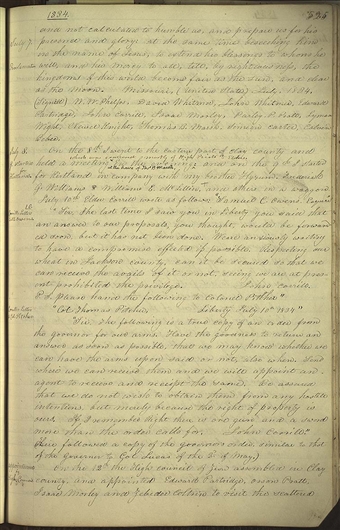 1834.
and not calculated to humble us, and prepare us for his
presence and glory: at the same time beseeching them
in the name of Jesus, to
well, and his mercy to all, till, by righteousness, the
kingdoms of this world become fair as the sun, and clear
as the moon. Missouri, (United States) July, 1834.
(Signed) W. W. Phelps, David Whitmer, John Whitmer, Edward
Partridge, John Corrill, Isaac Morley, Parley P. Pratt, Lyman
Wight, Newel Knight, Thomas B. Marsh, Simeon Carter, Calvin
Beebe.
July 8.
On the 8th I went to the eastern part of Clay county and
held a meeting in the evening and on the 9th I started
for Kirtland in company with my brother Hyrum, Frederick
G. Williams & William E. McLellin, and others in a waggon.
July 10th Elder Corrill wrote as follows: Samuel C. Owens, Esquire
"Sir, The last time I saw you in Liberty you said that
an answer to our proposals, you thought would be forward-
ed soon, but it has not been done. We are anxiously waiting
to have a compromise effected if possible. Respecting our
wheat in Jackson county, can it be secured so that we
can receive the avails of it or not, seeing we are at pres-
ent prohibited the privilege. John Corrill.
P.S. Please hand the following to Colonel Pitcher"
"Col. Thomas Pitcher Liberty July 10th 1834"
"Sir, The following is a true copy of an order from
the governor for our arms. Have the goodness to return an
answer as soon as possible, that we may know whether we
can have the arms upon said or not, also when. Send
when we can receive them and we will appoint an
agent to receive and receipt the same. We assured
that we do not wish to obtain them from any hostile
intentions, but merely because the right of property is
ours. If I remember right there is one gun and a sword
more than the order calls for. John Corrill."
Here followed a copy of the governors order, similar to that
of the governor to Col. Lucas of the 2d of May.)
On the 12th the High council of Zion assembled in Clay
county, and appointed Edward Partridge, Orson Pratt,
Isaac Morley and Zebedee Coltrin to visit the scattered